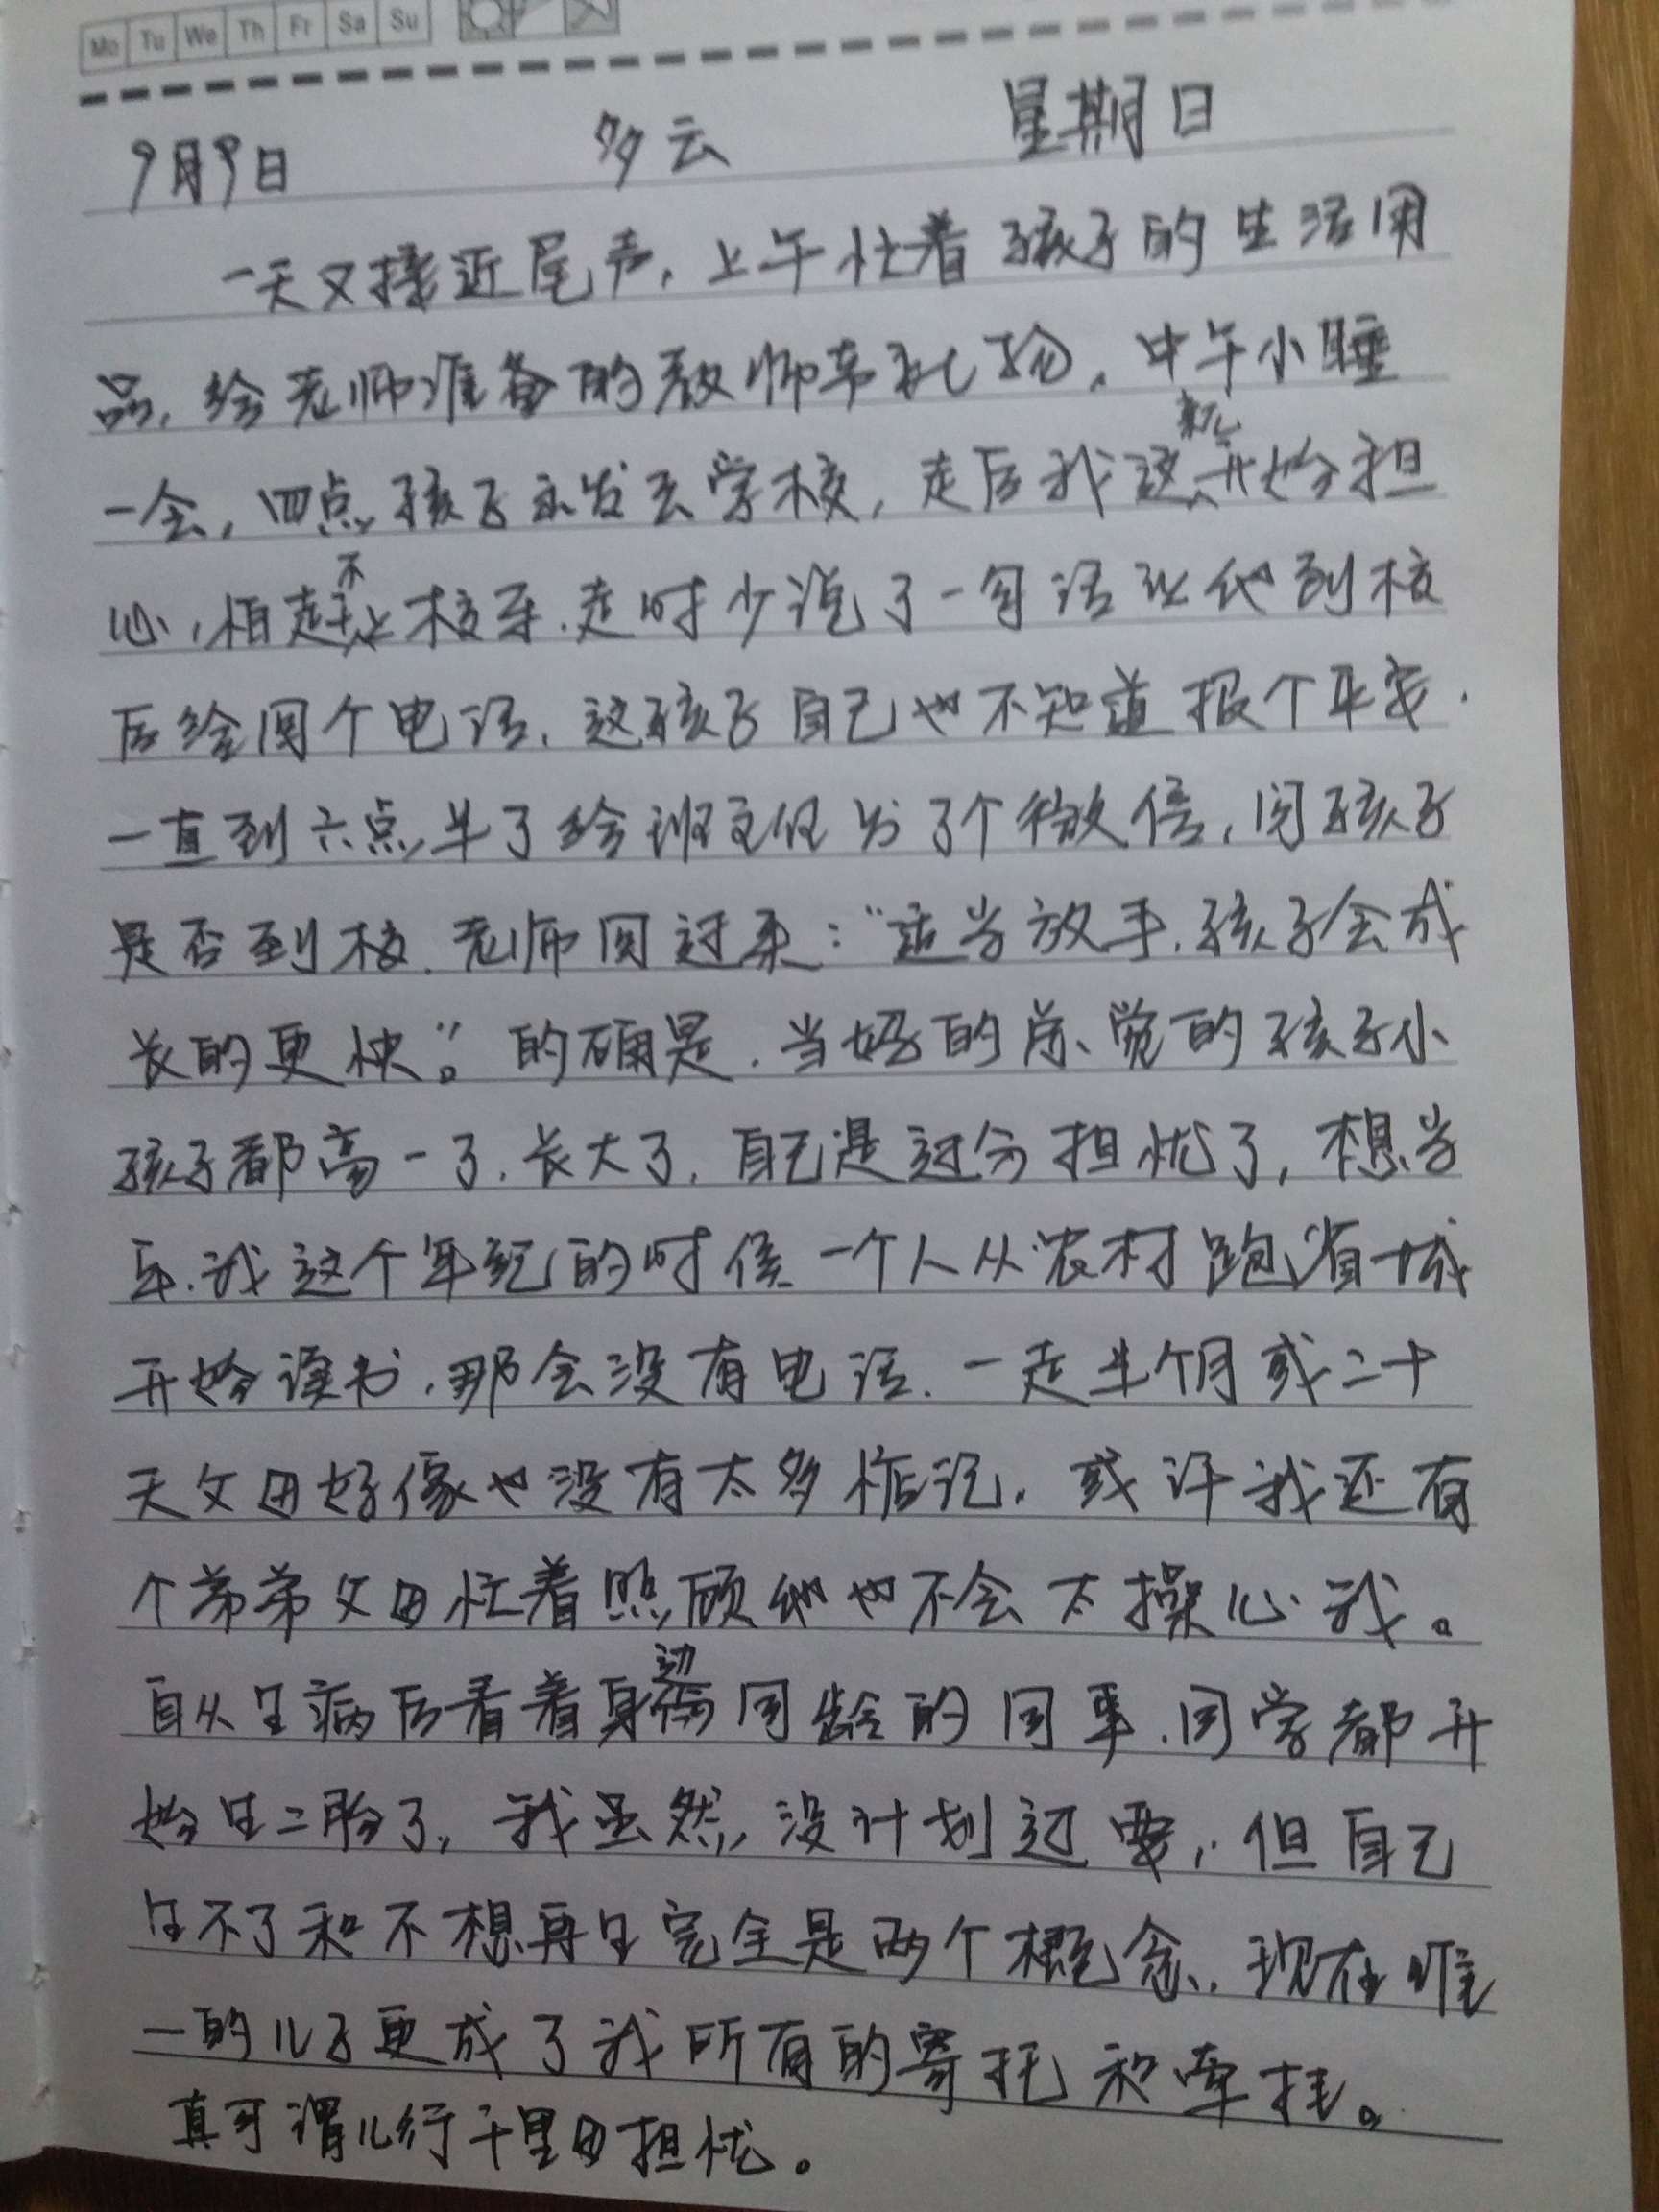 Mo Tu We Th Fr Sa Su
9月9日 多云 星期日
一天又接近尾声,上午忙着孩子的生活用
品,给老师准备的教师节礼物,中午小睡
一会,四点孩子出发去学校,走后我这就开始担
心,怕赶不上校车.走时少说了一句话让他到校
后给回个电话,这孩子自己也不知道报个平安.
一直到六点半了给班主任发了个微信,问孩子
是否到校.老师回过来:“适当放手,孩子会成
长的更快”。的确是.当妈的总、觉的孩子小
孩子都高一了.长大了,自己是过分担忧了,想当
年.我这个年纪的时候一个人从农村跑省城
开始读书,那会没有电话.一走半个月或二十
天父母好像也没有太多惦记,或许我还有
个弟弟父母忙着照顾他也不会太操心我。
自从生病后看着身边同龄的同事.同学都开
始生二胎了,我虽然没计划过要,但自己
生不了和不想再生完全是两个概念,现在唯
一的儿子更成了我所有的寄托和牵挂。
真可谓儿行千里母担忧。